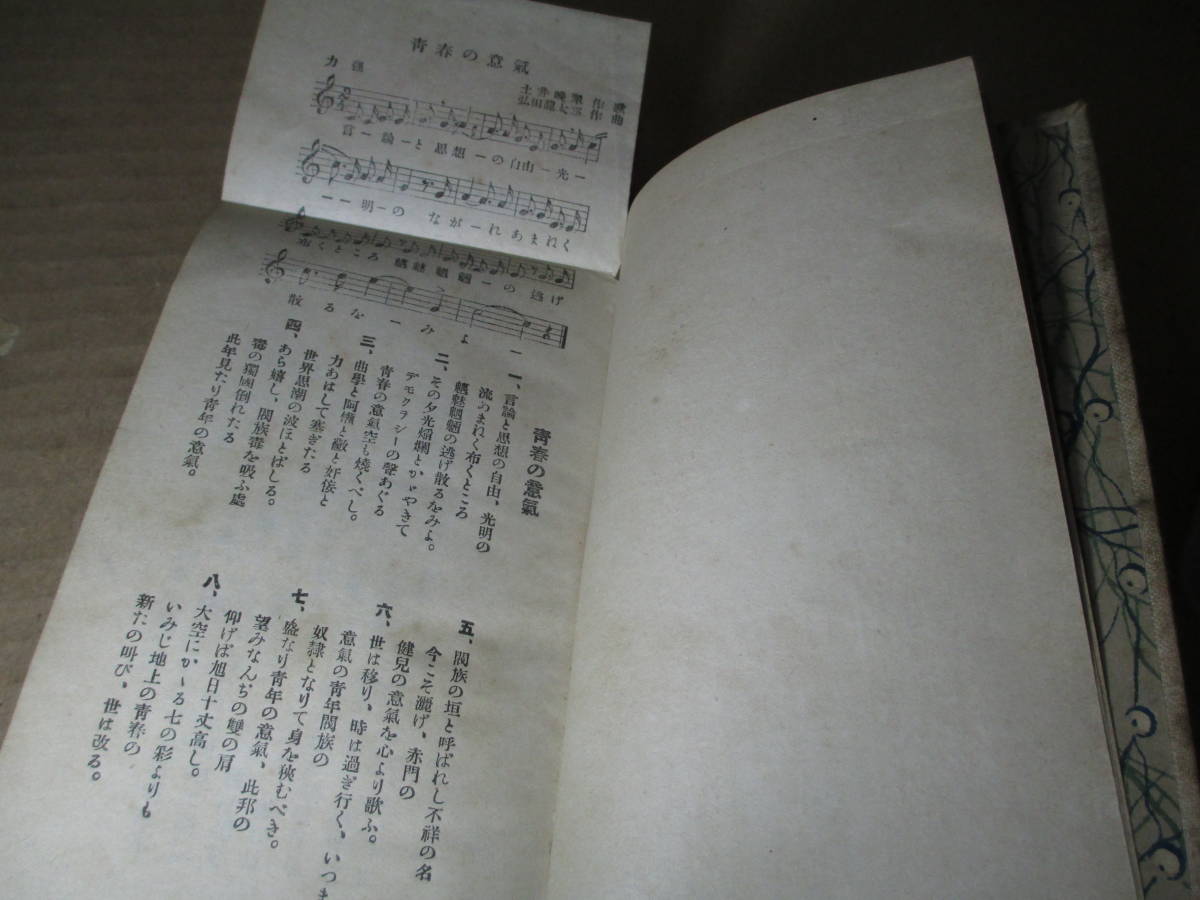 青春の意氣
力强
土井晩翠 作歌
弘田龍太郎 作曲
言ー論ーと思想ーの自由ー光ー
ーー明ーの ながーれあまねく
布くところ 魑魅魍魎ーの 逃げ
散るなーみよ
青春の意氣
一、言論と思想の自由、光明の
流あまねく布くところ
魑魅魍魎の逃げ散るをみよ。
二、その夕光焰爛とかゞやきて
デモクラシーの聲あぐる
青春の意氣空も燒くべし。
三、曲學と阿
力あはして塞ぎたる
世界思潮の波ほとばしる。
四、あら嬉し、閥族毒を吸ふ處
毒の獨國倒れたる
此年見たり青年の意氣。
五、閥族の垣と呼ばれし不祥の名
今こそ灑げ、赤門の
健兒の意氣を心より歌ふ。
六、世は移り、時は過ぎ行く、いつま
意氣の青年閥族の
奴隷となりて身を狹むべき。
七、盛なり青年の意氣、此邦の
望みなんぢの雙の肩
仰げば旭日十丈高し。
八、大空にかゝる七の彩よりも
いみじ地上の青春の
新たの叫び、世は改る。